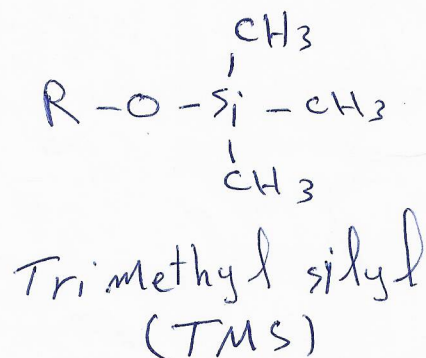 CH3
R-O-Si-CH3
CH3
Trimethyl silyl
(TMS)